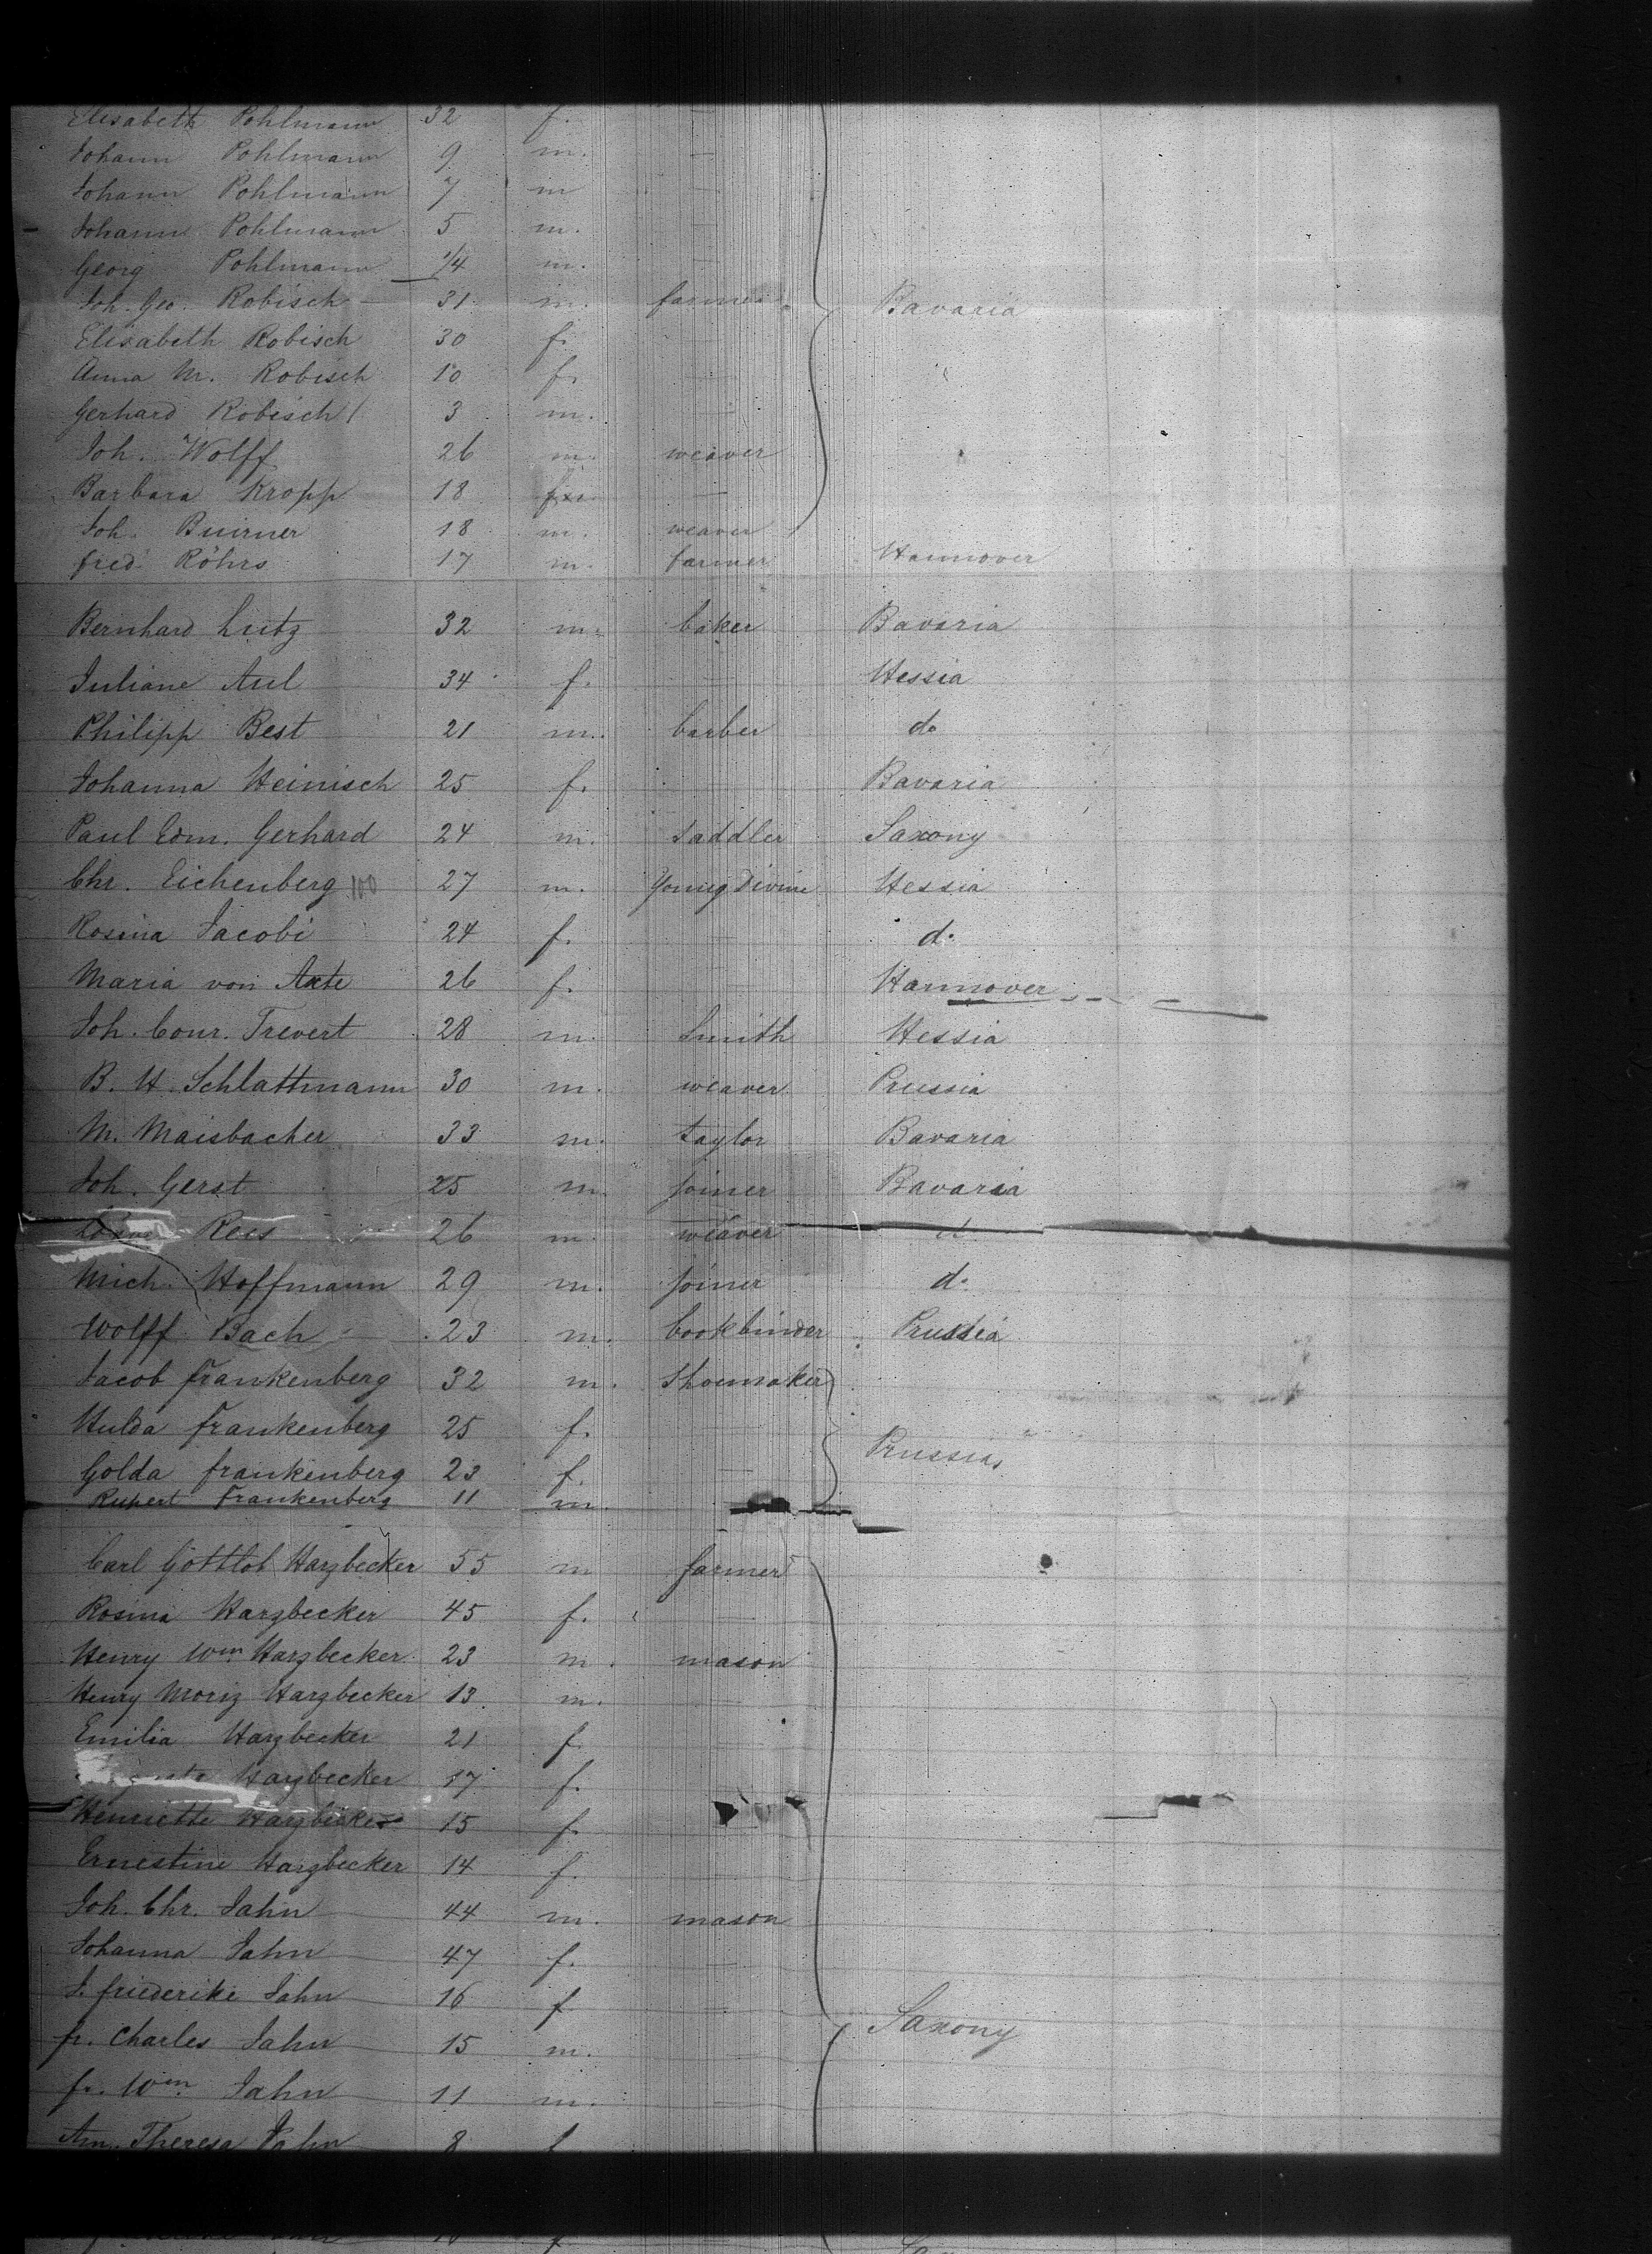 Elisabeth Pohlmann 32 f. —
Johann Pohlmann 9 m. —
Johann Pohlmann 7 m
Johann Pohlmann 5 m.
Georg Pohlmann 1/4 m. —
Joh. Geo. Robisch 31 m. farmer Bavaria
Elisabeth Robisch 30 f.
Anna M. Robisch 10 f. —
Gerhard Robisch 3 m.
Joh. Wolff 26 m. weaver
Barbara Kropp 18 —
Joh. Buirner 18 m. weaver
fred. Röhrs 17 m. farmer Hannover
Bernhard Lutz 32 m. baker Bavaria
Juliane Aul 34 f. — Hessia
Philipp Best 21 m. barber do
Johanna Heinisch 25 f. Bavaria
Paul Edm. Gerhard 24 m. Saddler Saxony
Chr. Eichenberg 100 27 m. Young Divine Hessia
Rosina Jacobi 24 f. do
Maria von Axte 26 f. Hannover
Joh. Conr. Trevert 28 m. Smith Hessia
B. H. Schlattmann 30 m. weaver Prussia
M. Maisbacher 33 m. taylor Bavaria
Joh. Gerst 25 m. joiner Bavaria
Rees 26 m. weaver d
Mich. Hoffmann 29 m. joiner do
Wolff Bach 23 m. bookbinder Prussia
Jacob Frankenberg 32 m. Shoemaker
Hulda Frankenberg 25 f. —
Prussia
Golda frankenberg 23 f. —
Rupert Frankenberg 11 m.
Carl Gottlob Harzbecker 55 m farmer
Rosina Harzbecker 45 f. —
Henry Wm Harzbecker 23 m. mason
Henry Moriz Harzbecker 13 m.
Emilia Harzbecker 21 f
Harzbecker 17 f.
Henriette Harzbecker 15 f.
Ernestine Harzbecker 14 f.
Joh. Chr. Jahn 44 m. mason
Johanna Jahn 47 f.
J. friederike Jahn 16 f
Saxony
fr. Charles Jahn 15 m.
fr. Wm Jahn 11 m.
Am. Theresa Jahn 8 f